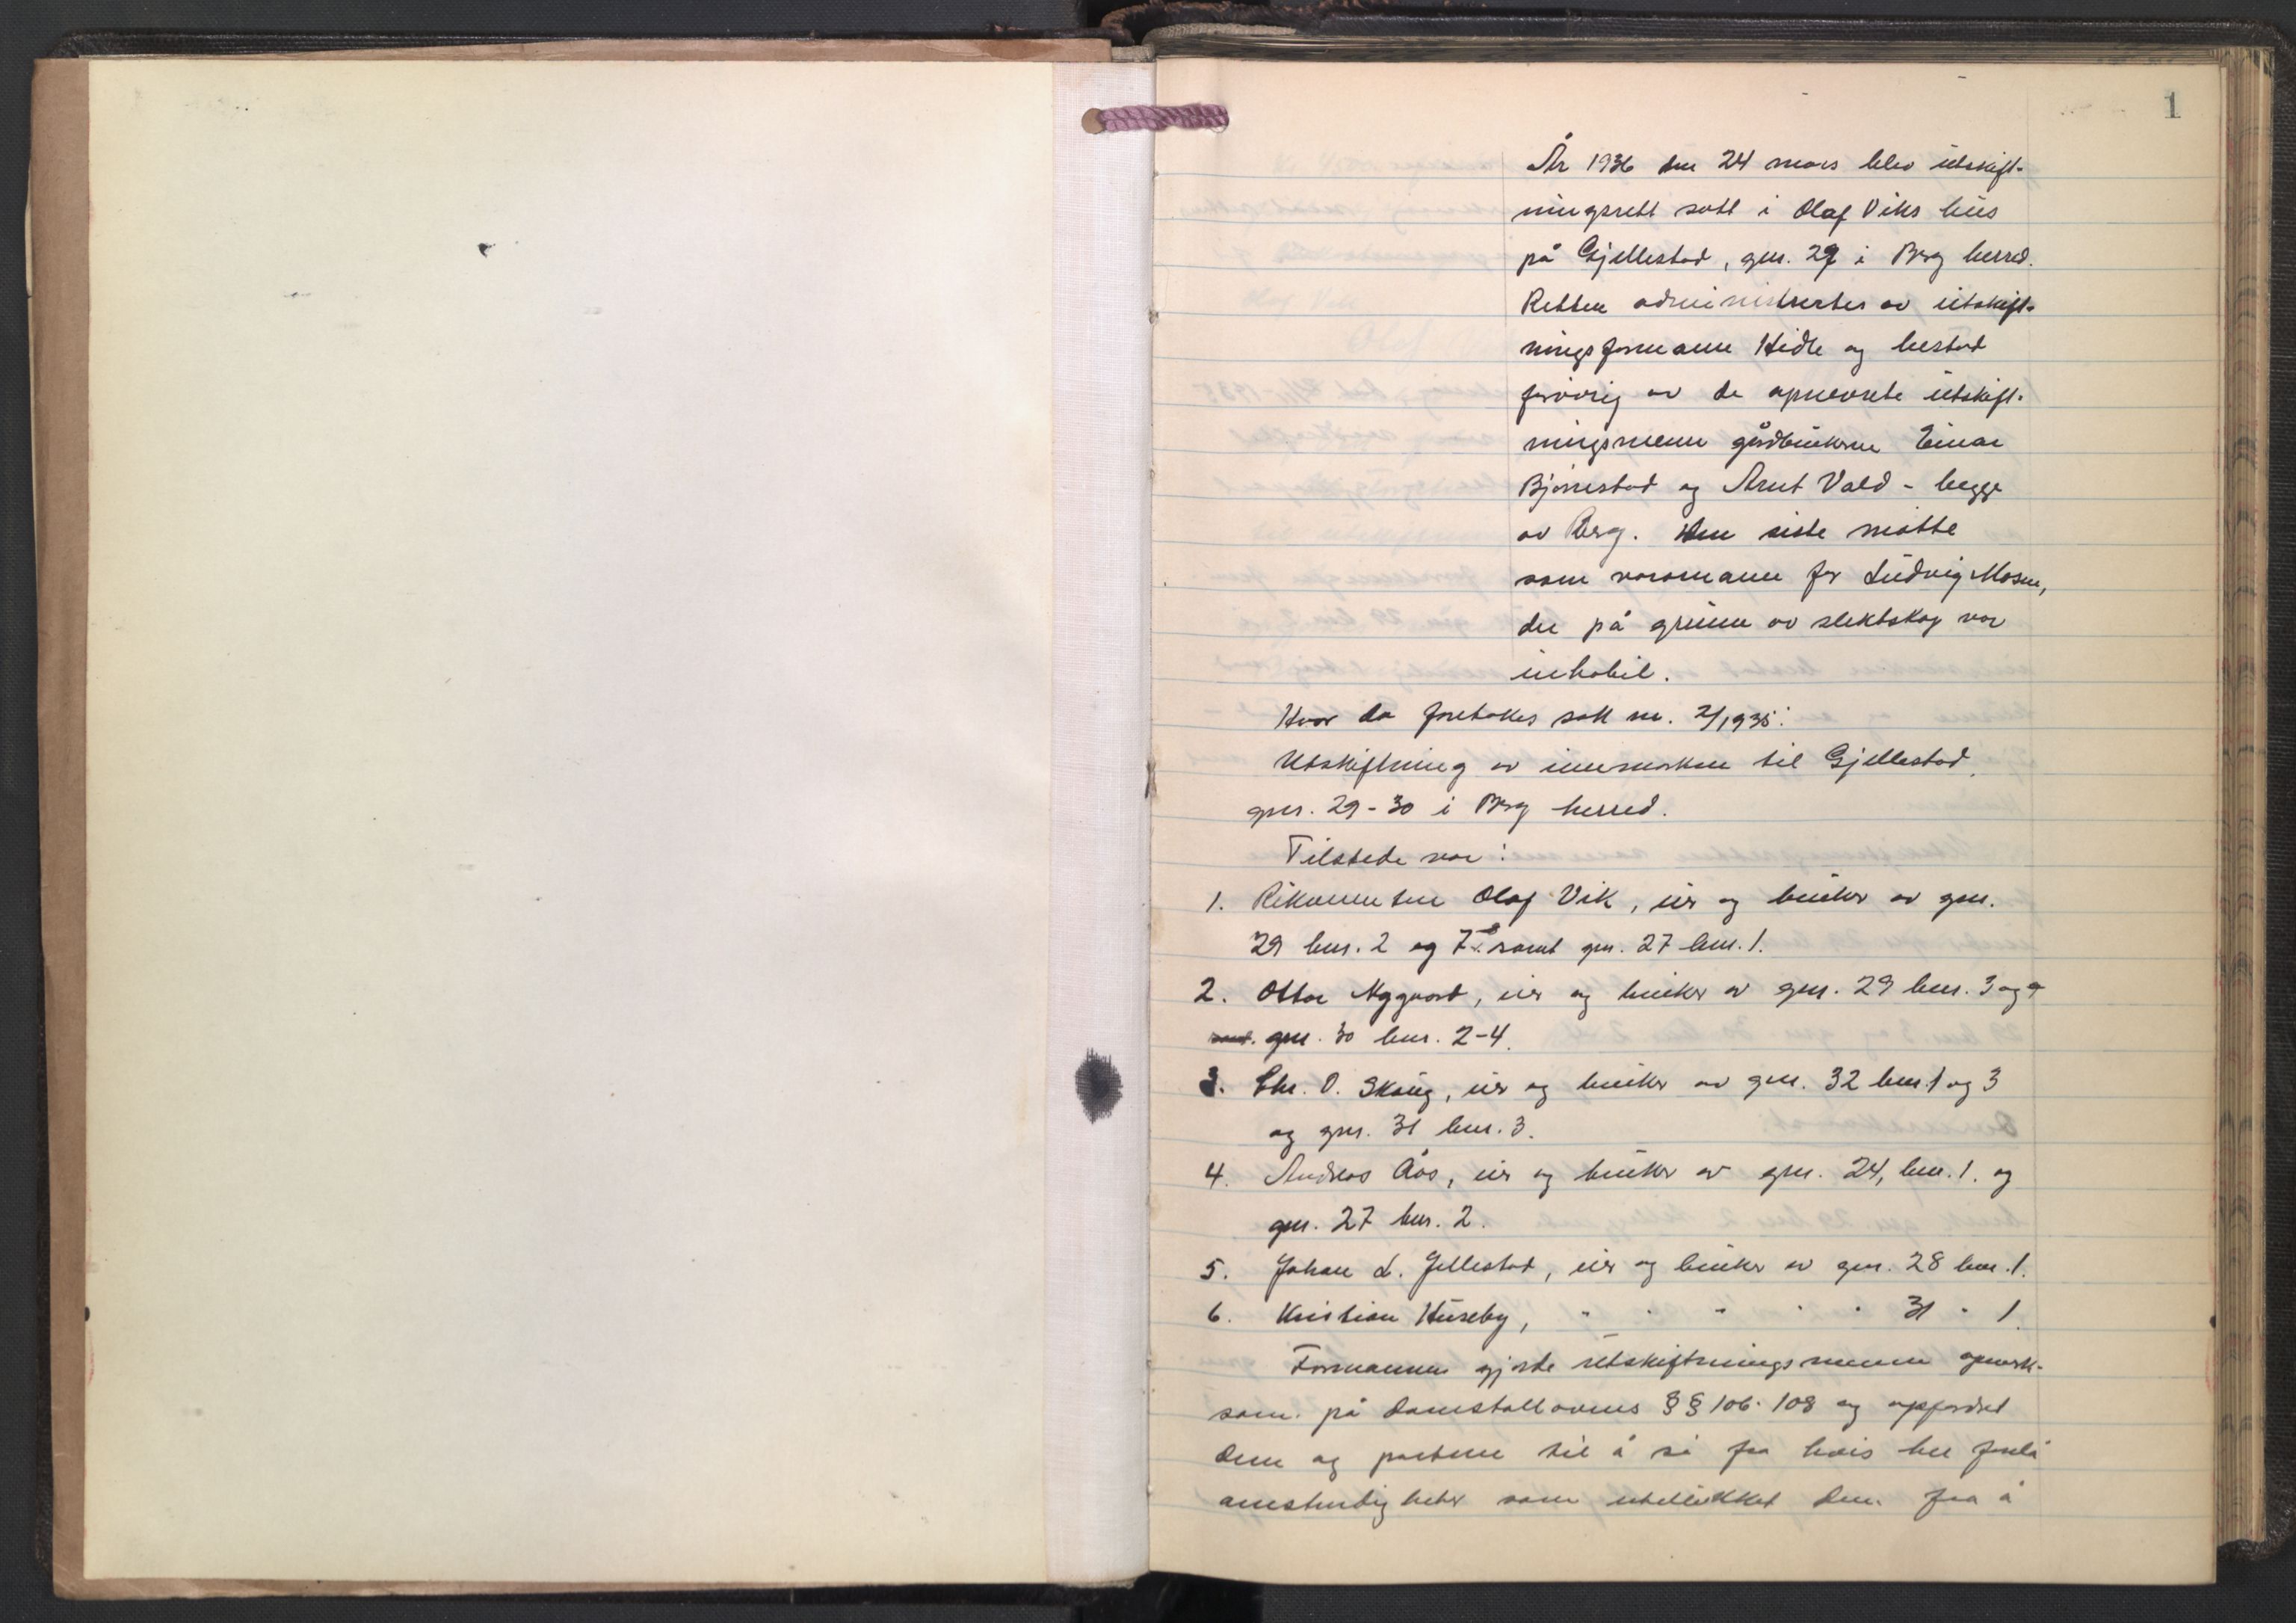 1
År 1936 den 24 mars blev utskift-
ningsrett satt i Olaf Viks hus
på Gjellestad, gnr. 29 i Berg herred.
Retten administrertes av utskift-
ningsformann Hidle og bestod
forøvrig av de opnevnte utskift-
ningsmenn gårdbrukerne Einar
Bjørnestad og Arnt Vold - begge
av Berg. Den siste møtte
som varamann for Ludvig Mosen,
der på grunn av slektskap var
inhabil.
Hvor da foretokes sak nr. 2/1935:
Utskiftning av innmarken til Gjellestad,
gnr. 29-30 i Berg herred.
Tilstede var:
1. Rekvirenten Olaf Vik, eier og bruker av gnr.
29 bnr. 2 og 7-8 samt gnr. 27 bnr. 1.
2. Ottar Nygaard, eier og bruker av gnr. 29 bnr. 3 og 9
samt. gnr. 30 bnr. 2-4.
3. Chr. O. Skaug, eier og bruker av gnr. 32 bnr. 1 og 3
og gnr. 31 bnr. 3.
4. Andreas Aas, eier og bruker av gnr. 24, bnr. 1. og
gnr. 27 bnr. 2.
5. Johan L. Jellestad, eier og bruker av gnr. 28 bnr. 1.
6. Kristian Huseby, " " " " " 31 " 1.
Formannen gjorde utskiftningsmennene opmerk-
som på domstollovens §§ 106-108 og oppfordret
dem og partene til å si fra hvis der forelå
omstendigheter som utelukket dem fra å